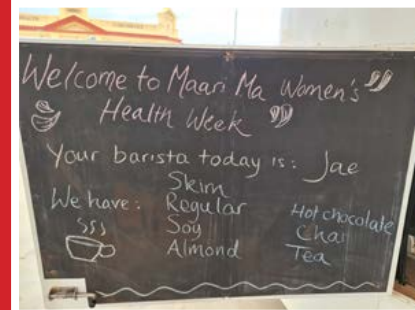 Welcome to Maari Ma Women's
Health Week
Your barista today is: Jae
Skim
We have: Regular
Soy
Almond
Hot chocolate
Chai
Tea